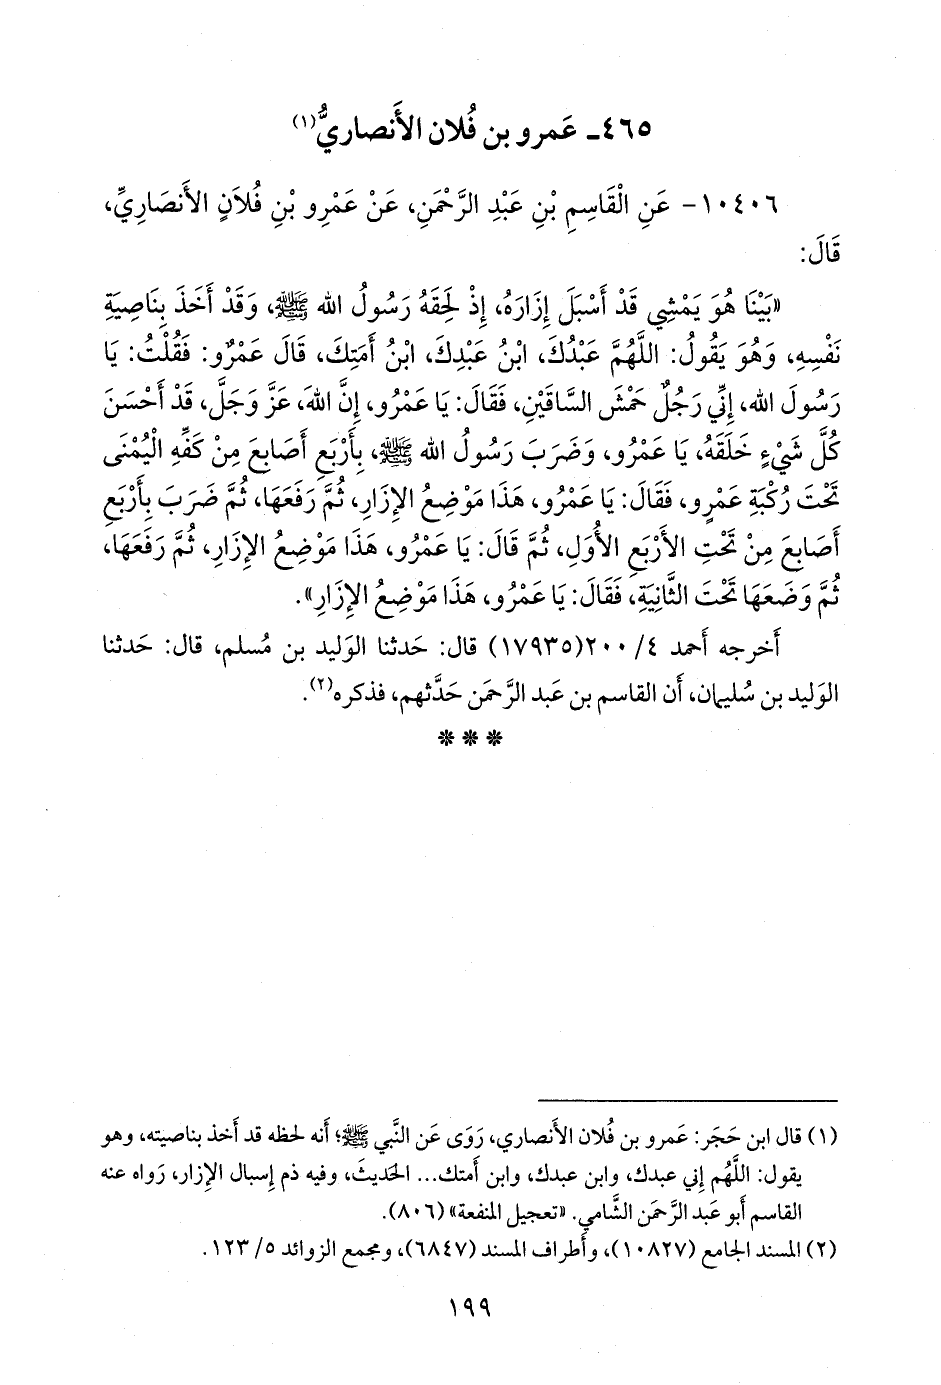 ٤٦٥ـ عَمرو بن فُلان الأَنصاريُّ(١)
١٠٤٠٦ - عَنِ الْقَاسِمِ بْنِ عَبْدِ الرَّحْمَنِ، عَنْ عَمْرِو بْنِ فُلاَنٍ الأَنصَارِيِّ،
قَالَ:
«بَيْنَا هُوَ يَمْشِي قَدْ أَسْبَلَ إِزَارَهُ، إِذْ لَحِقَهُ رَسُولُ الله ﷺ، وَقَدْ أَخَذَ بِنَاصِيَةِ
نَفْسِهِ، وَهُوَ يَقُولُ: اللَّهُمَّ عَبْدُكَ، ابْنُ عَبْدِكَ، ابْنُ أَمَتِكَ، قَالَ عَمْرٌو: فَقُلْتُ: يَا
رَسُولَ الله، إِنِّي رَجُلٌ حَمْشَ السَّاقَيْنِ، فَقَالَ: يَا عَمْرُو، إِنَّ اللهَ، عَزَّ وَجَلَّ، قَدْ أَحْسَنَ
كُلَّ شَيْءٍ خَلَقَهُ، يَا عَمْرُو، وَضَرَبَ رَسُولُ الله ﷺ، بِأَرْبَعِ أَصَابِعَ مِنْ كَفِّهِ الْيُمْنَى
تَحْتَ رُكْبَةِ عَمْرٍو، فَقَالَ: يَا عَمْرُو، هَذَا مَوْضِعُ الإِزَارِ، ثُمَّ رَفَعَهَا، ثُمَّ ضَرَبَ بِأَرْبَعِ
أَصَابِعَ مِنْ تَحْتِ الأَرْبَعِ الأُوَلِ، ثُمَّ قَالَ: يَا عَمْرُو، هَذَا مَوْضِعُ الإِزَارِ، ثُمَّ رَفَعَهَا،
ثُمَّ وَضَعَهَا تَحْتَ الثَّانِيَةِ، فَقَالَ: يَا عَمْرُو، هَذَا مَوْضِعُ الإِزَارِ».
أَخرجه أَحمد ٤/ ٢٠٠(١٧٩٣٥) قال: حَدثنا الوَليد بن مُسلم، قال: حَدثنا
الوَليد بن سُليمان، أَن القاسم بن عَبد الرَّحمَن حَدَّثهم، فذكره(٢).
* * *
(١) قال ابن حَجَر: عَمرو بن فُلان الأَنصاري، رَوَى عَن النَّبي ﷺ؛ أَنه لحظه قد أَخذ بناصيته، وهو
يقول: اللَّهُم إِني عبدك، وابن عبدك، وابن أَمتك... الحديثَ، وفيه ذم إِسبال الإِزار، رَواه عنه
القاسم أَبو عَبد الرَّحمَن الشَّامي. «تعجيل المنفعة» (٨٠٦).
(٢) المسند الجامع (١٠٨٢٧)، وأَطراف المسند (٦٨٤٧)، ومجمع الزوائد ٥/ ١٢٣.
١٩٩